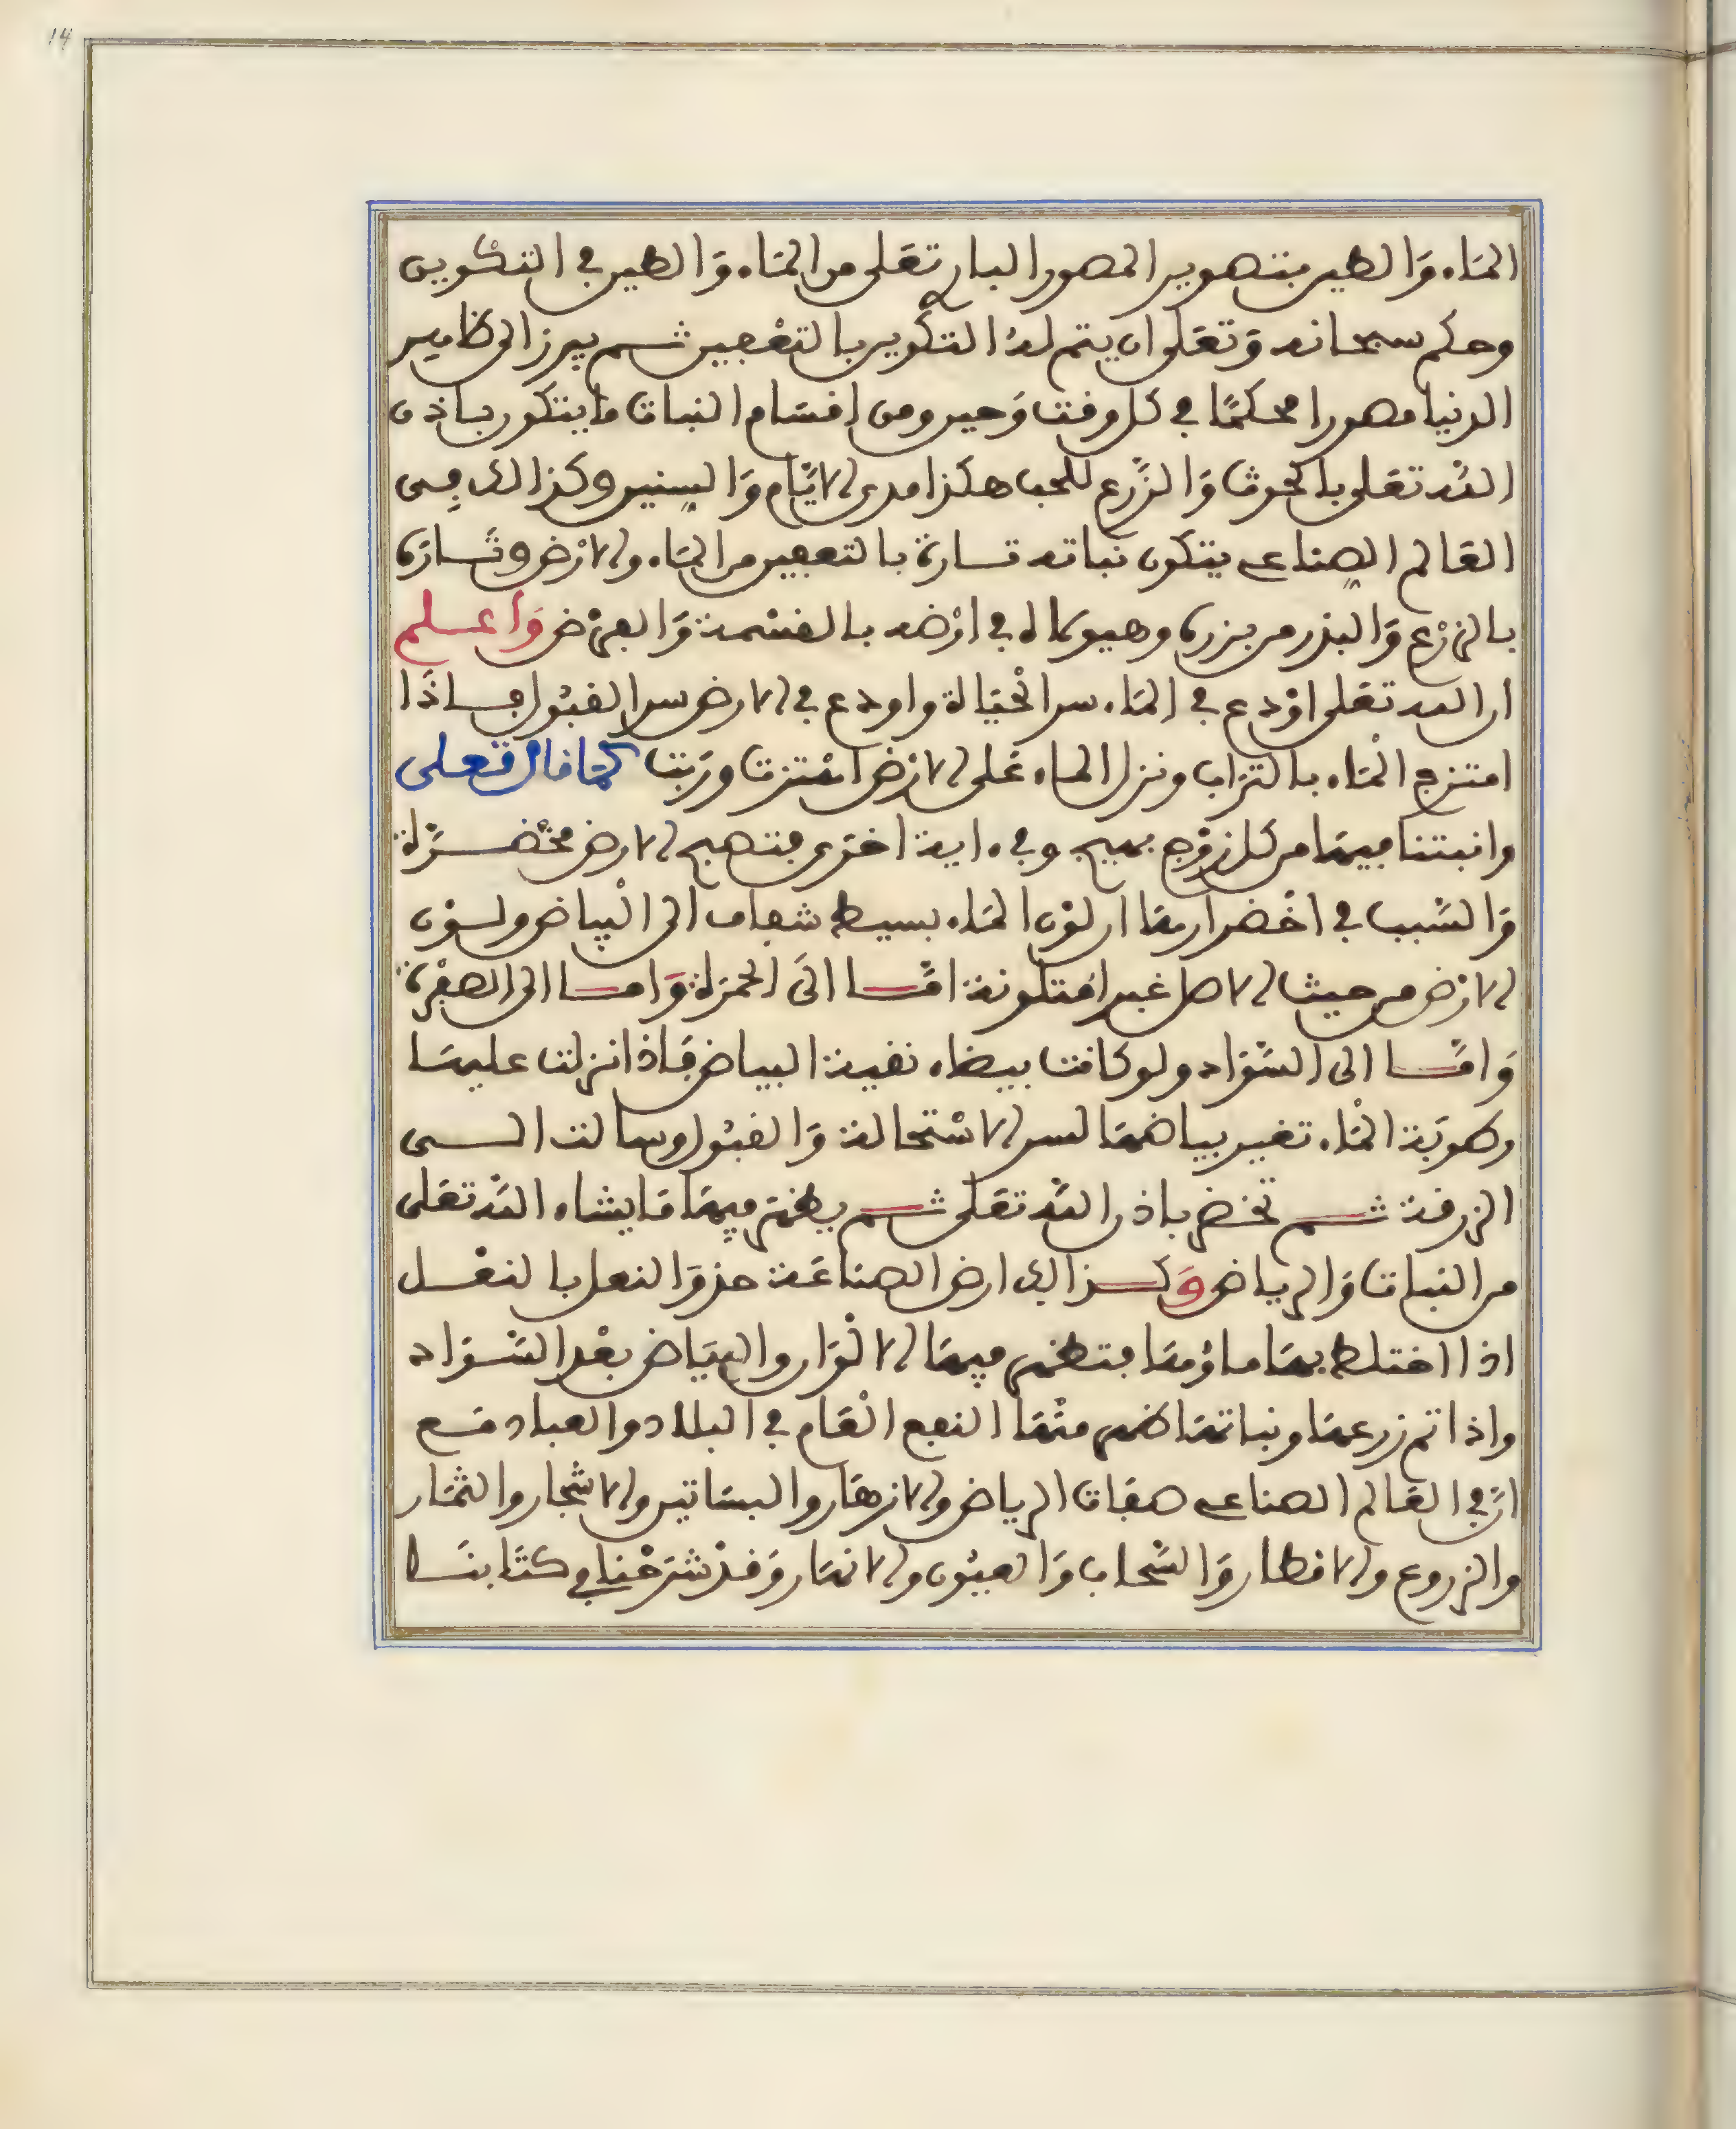 14
الماء والطين بتصوير المصور البارى تعلى من الماء والطين في التكوين
وحكم سبحانه وتعلى ان يتم له التكوين بالتعفين ثم يبرز الى ظاهر
الدنيا مصورا محكما في كل وقت وحين ومن اقسام النبات ما يتكون باذن
الله تعلى بالحرث والزرع للحب هكذا مدى الايام والسنين وكذالك في
العالم الصناعي يتكون نباته تارة بالتعفين من الماء والارض وتارة
بالزرع والبذر من بزره وهيوكاله في ارضه بالقسمة والعرض واعلم
ان الله تعلى اودع في الماء سر الحياة واودع في الارض سر القبول فاذا
امتزج الماء بالتراب ونزل الماء على الارض اهتزت وربت كما قال تعلى
وانبتنا فيها من كل زوج بهيج وفي ءاية اخرى فتصبح الارض مخضرة
والسبب في اخضرارها ان لون الماء بسيط شفاف الى البياض ولون
الارض من حيث الاصل غبرا متلونة اما الى الحمرة واما الى الصفرة
واما الى السواد ولو كانت بيضاء نقية البياض فاذا نزلت عليها
رطوبة الماء تغير بياضها لسر الاستحالة والقبول ومالت الى
الزرقة ثم تخضر باذن الله تعلى ثم يظهر فيها ما يشاء الله تعلى
من النبات والرياض وكذالك ارض الصناعة حذو النعل بالنعل
اذا اختلط بها ماؤها فتظهر فيها الالوان والبياض بعد السواد
واذا تم زرعها ونباتها ظهر منها النفع العام في البلاد والعباد مع
ان في العالم الصناعي صفات الرياض والازهار والبساتين والاشجار والثمار
والزروع والامطار والسحاب والعيون والانهار وقد شرحنا في كتابنا